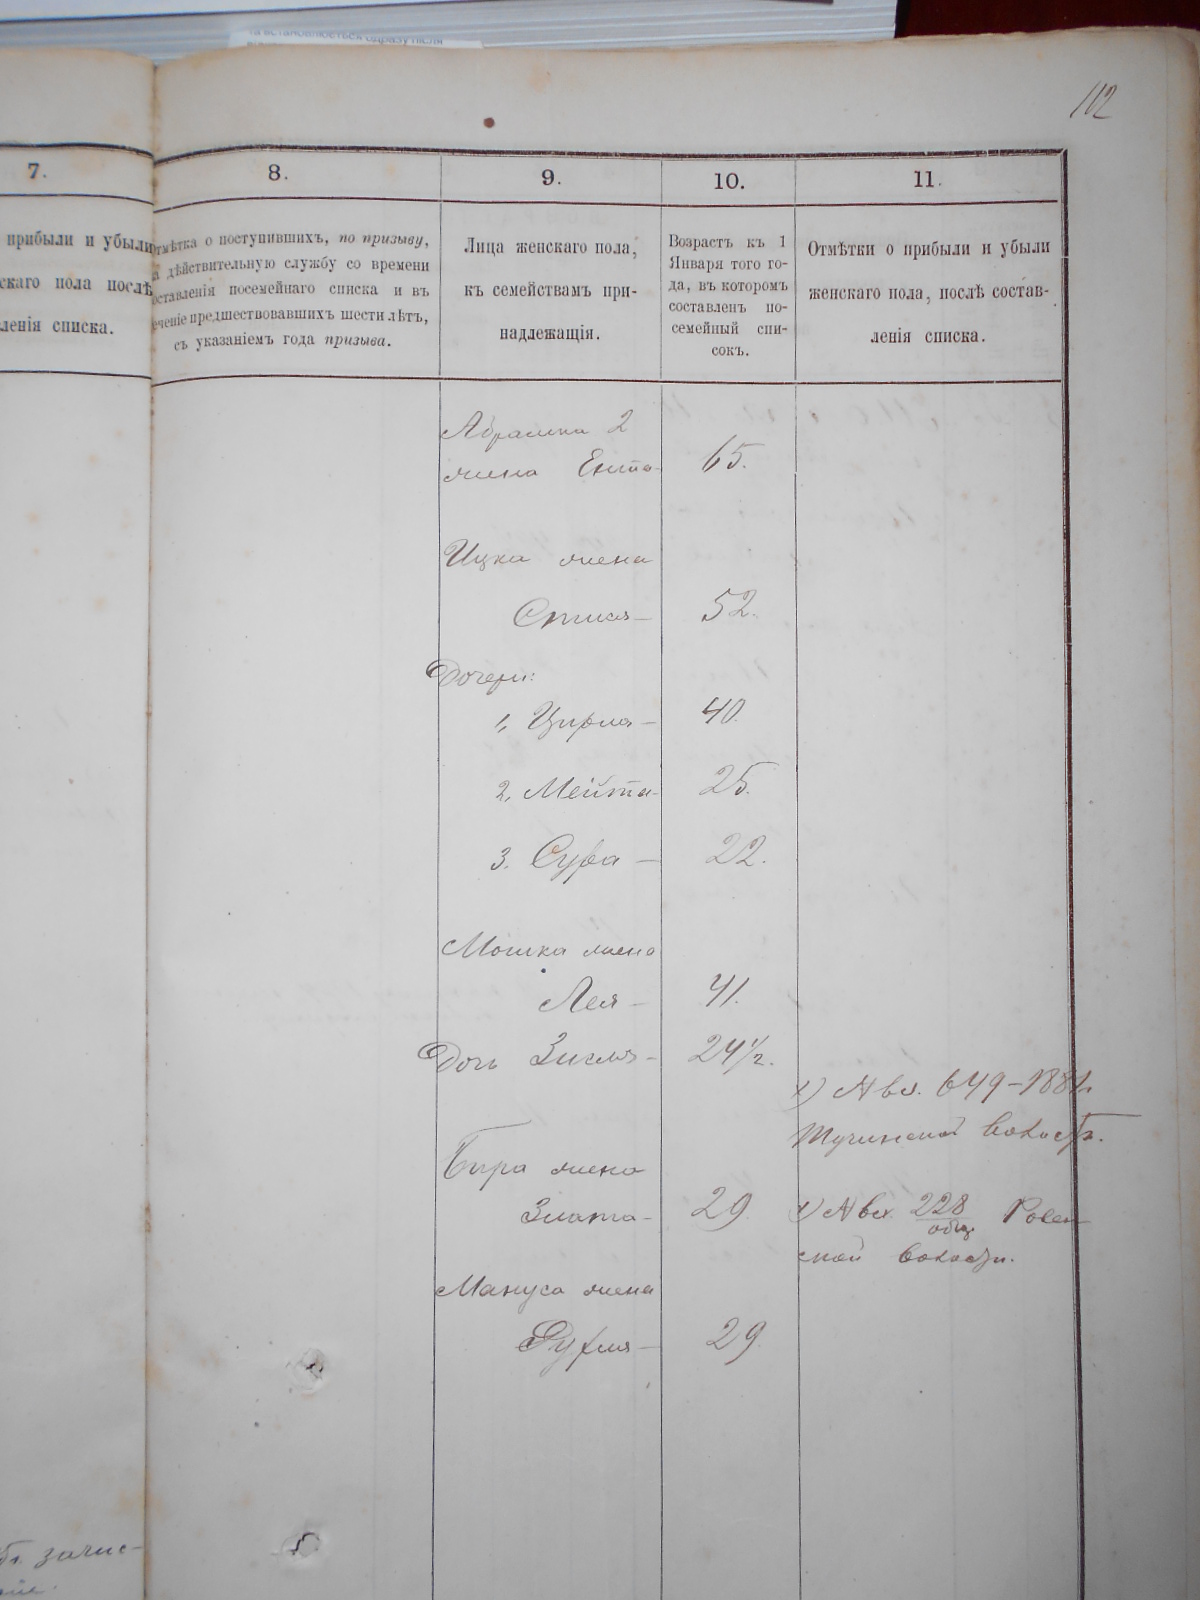 та встановлюється одразу після
112
7.
8.
9.
10.
11.
прибыли и убыли
скаго пола послѣ
ленія списка.
Отмѣтка о поступившихъ, по призыву,
на дѣйствительную службу со времени
составленія посемейнаго списка и въ
теченіе предшествовавшихъ шести лѣтъ,
съ указаніемъ года призыва.
Лица женскаго пола,
къ семействамъ при-
надлежащія.
Возрастъ къ 1
Января того го-
да, въ которомъ
составленъ по-
семейный спи-
сокъ.
Отмѣтки о прибыли и убыли
женскаго пола, послѣ состав-
ленія списка.
Абрамка 2
жена Ента 65.
Ицка жена
52.
Дочери:
1, Цирля 40.
2, Мейта 25.
3. Сура 22.
Мошка жена
Лея 41.
Дочь Зисля 24½.
х) № вх. 649-1881.
Тучинской волости.
Бира жена
Злата 29
х) № вх. 228 общ. Ровен
ской волости.
Мануса жена
29.
зачис-